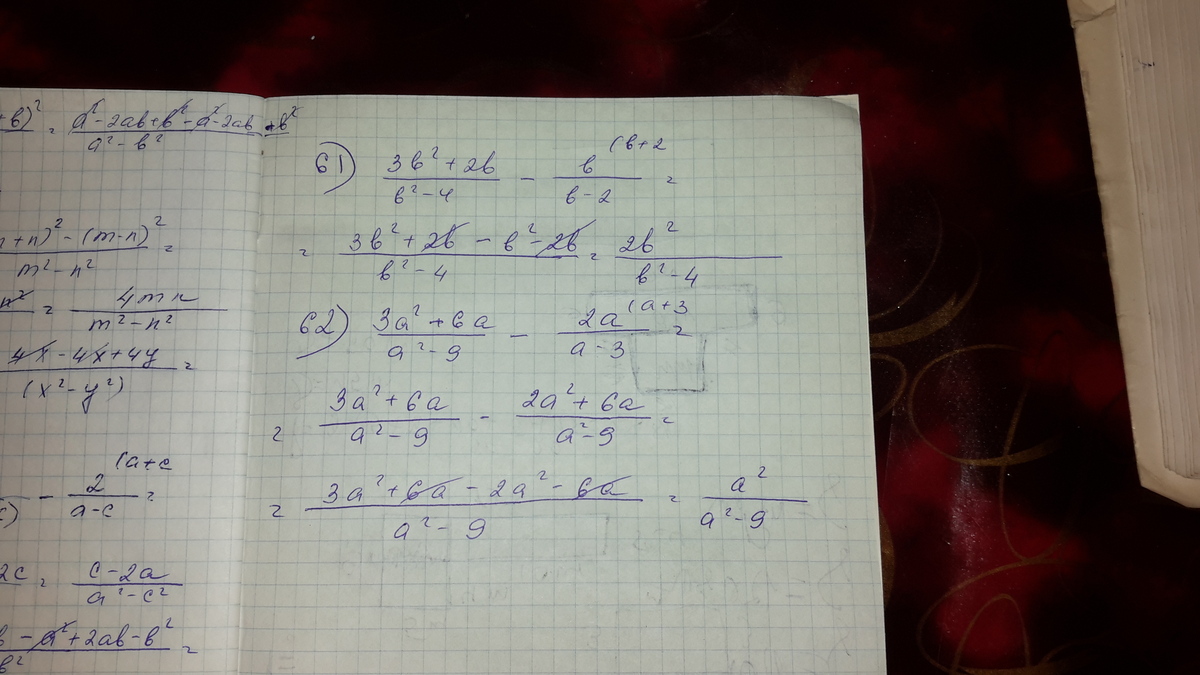 +b)² = (a² - 2ab + b² - a² - 2ab + b²)/(a² - b²)
+n)² - (m-n)² / (m² - n²) =
n² = 4mn/(m² - n²)
4x - 4x + 4y / (x² - y²) =
- 2/(a-c) (a+c =
2c = (c - 2a)/(a² - c²)
b - a² + 2ab - b² / b² =
61) (3b² + 2b)/(b² - 4) - b/(b - 2) (b+2 =
= (3b² + 2b - b² - 2b)/(b² - 4) = 2b²/(b² - 4)
62) (3a² + 6a)/(a² - 9) - 2a/(a - 3) (a+3 =
= (3a² + 6a)/(a² - 9) - (2a² + 6a)/(a² - 9) =
= (3a² + 6a - 2a² - 6a)/(a² - 9) = a²/(a² - 9)